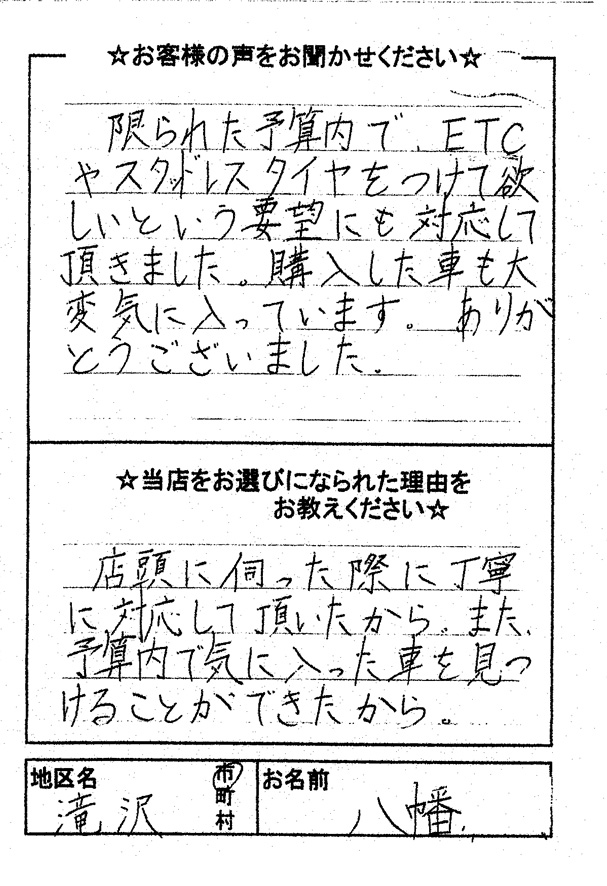 ☆お客様の声をお聞かせください☆
限られた予算内で、ETC
やスタッドレスタイヤをつけて欲
しいという要望にも対応して
頂きました。購入した車も大
変気に入っています。ありが
とうございました。
☆当店をお選びになられた理由を
お教えください☆
店頭に伺った際に丁寧
に対応して頂いたから。また、
予算内で気に入った車を見つ
けることができたから。
地区名
滝沢
市
町
村
お名前
八幡